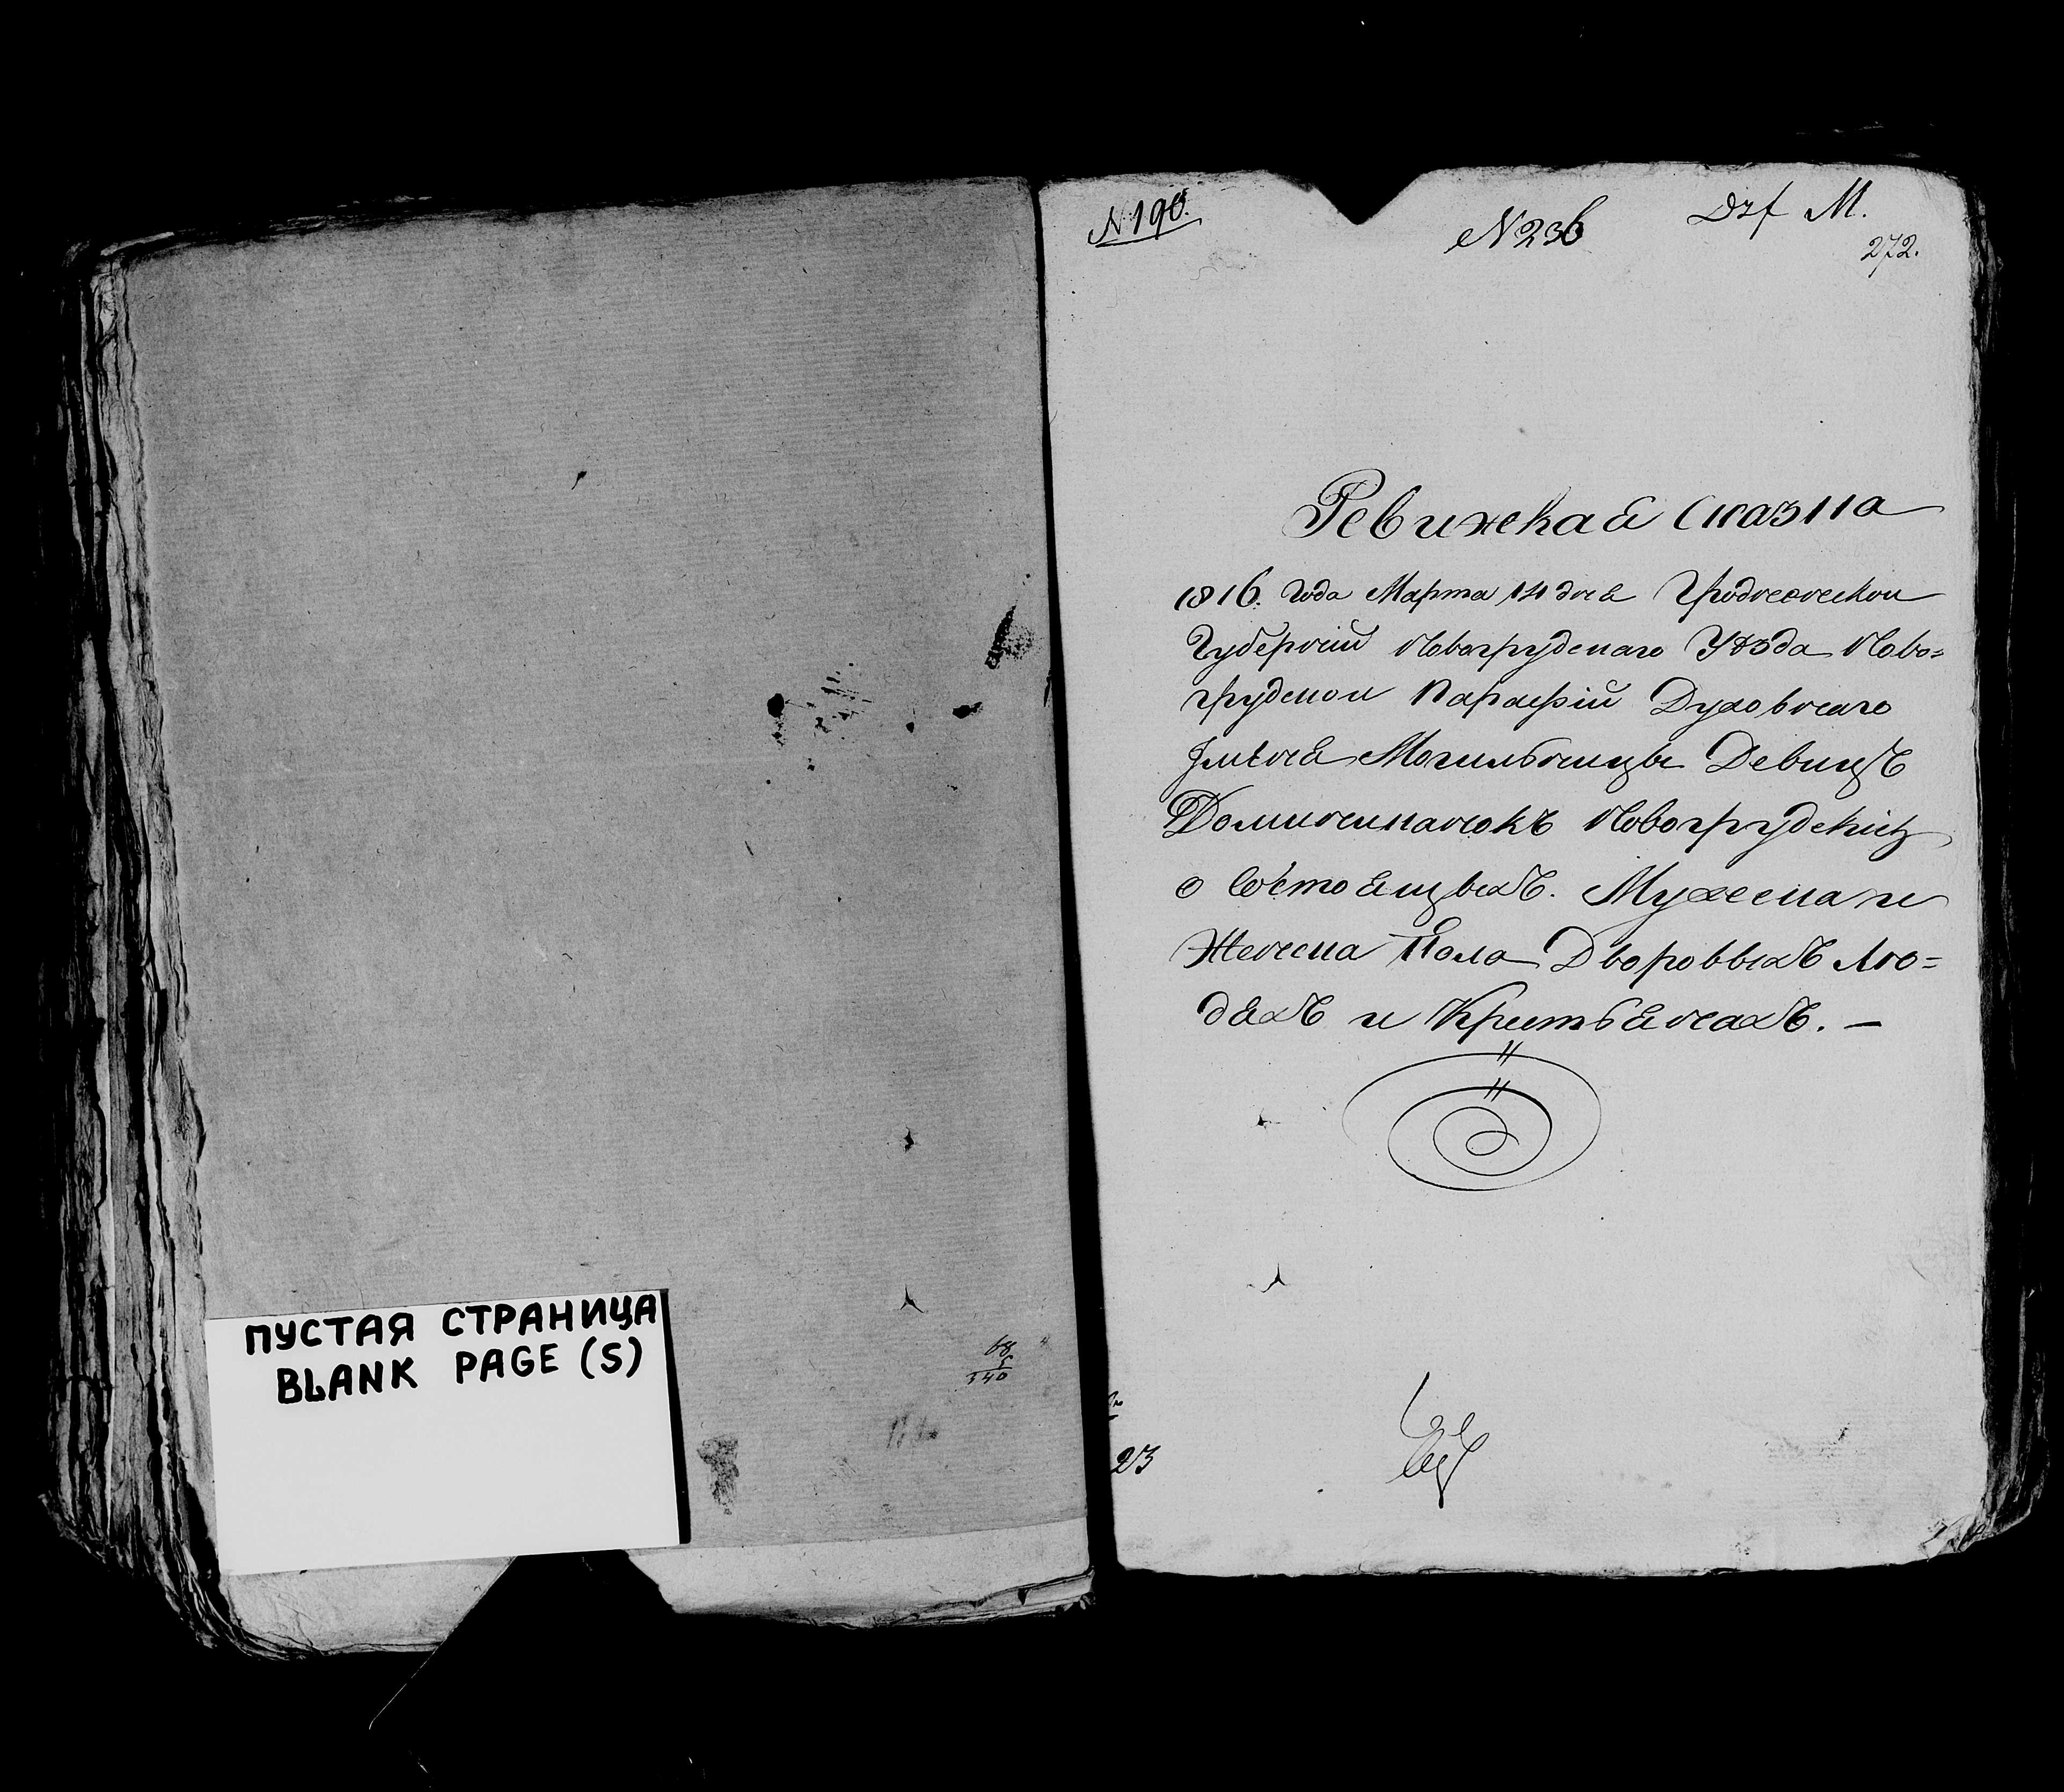 ПУСТАЯ СТРАНИЦА
BLANK PAGE (S)
68
5
340
N 190.
N 236
Dzf M.
272.
Ревижская Сказка
1816. Года Марта 14 дня Гродненской
Губернии Новогрудскаго Уѣзда Ново=
грудской Парафіи Духовнаго
Имѣня Могильницы Девицъ
Доминиканокъ Новогрудскихъ
о состоящыхъ. Мужеска и
Женска Пола Дворовыхъ Лю=
дяхъ и Крестьянахъ. —
23